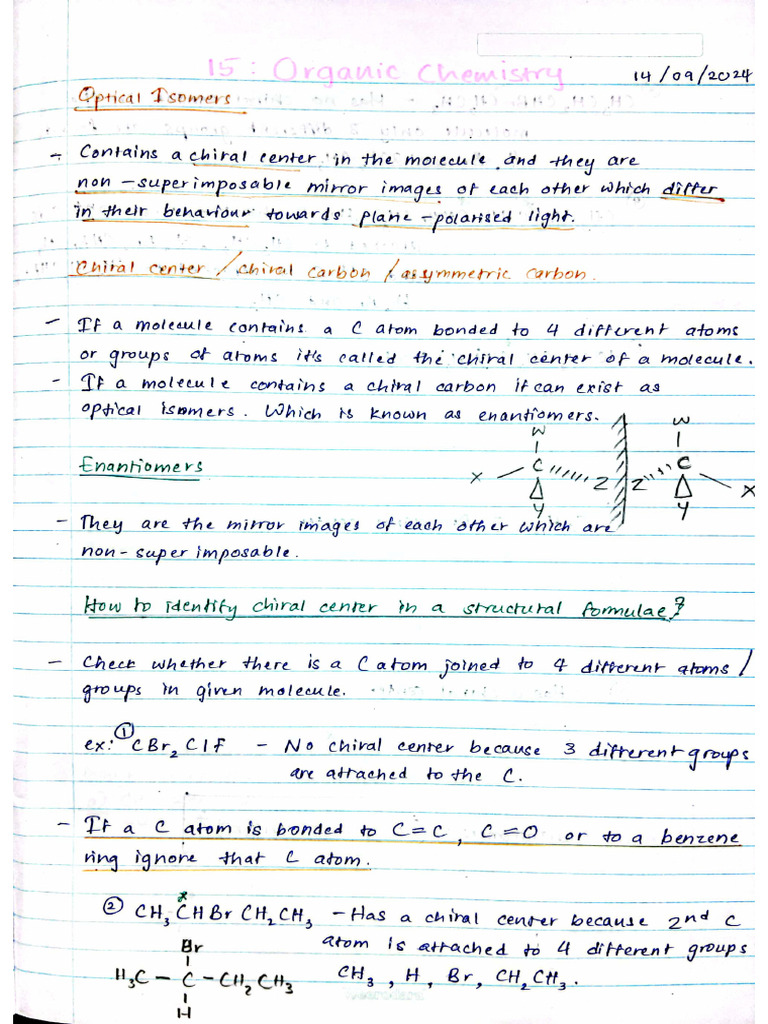 15 : Organic Chemistry
14/09/2024
Optical Isomers
- Contains a chiral center in the molecule and they are
non-superimposable mirror images of each other which differ
in their behaviour towards plane-polarised light.
Chiral center / chiral carbon / assymmetric carbon.
- If a molecule contains a C atom bonded to 4 different atoms
or groups of atoms it's called the chiral center of a molecule.
- If a molecule contains a chiral carbon it can exist as
optical isomers. Which is known as enantiomers.
W W
X C Z Z C X
Y Y
Enantiomers
- They are the mirror images of each other which are
non-superimposable.
How to identify chiral center in a structural formulae?
- Check whether there is a C atom joined to 4 different atoms/
groups in given molecule.
ex: ① CBr₂ClF - No chiral center because 3 different groups
are attached to the C.
- If a C atom is bonded to C=C, C=O or to a benzene
ring ignore that C atom.
② CH₃C*HBrCH₂CH₃ - Has a chiral center because 2nd C
atom is attached to 4 different groups
CH₃, H, Br, CH₂CH₃.
Br
H₃C - C - CH₂CH₃
H